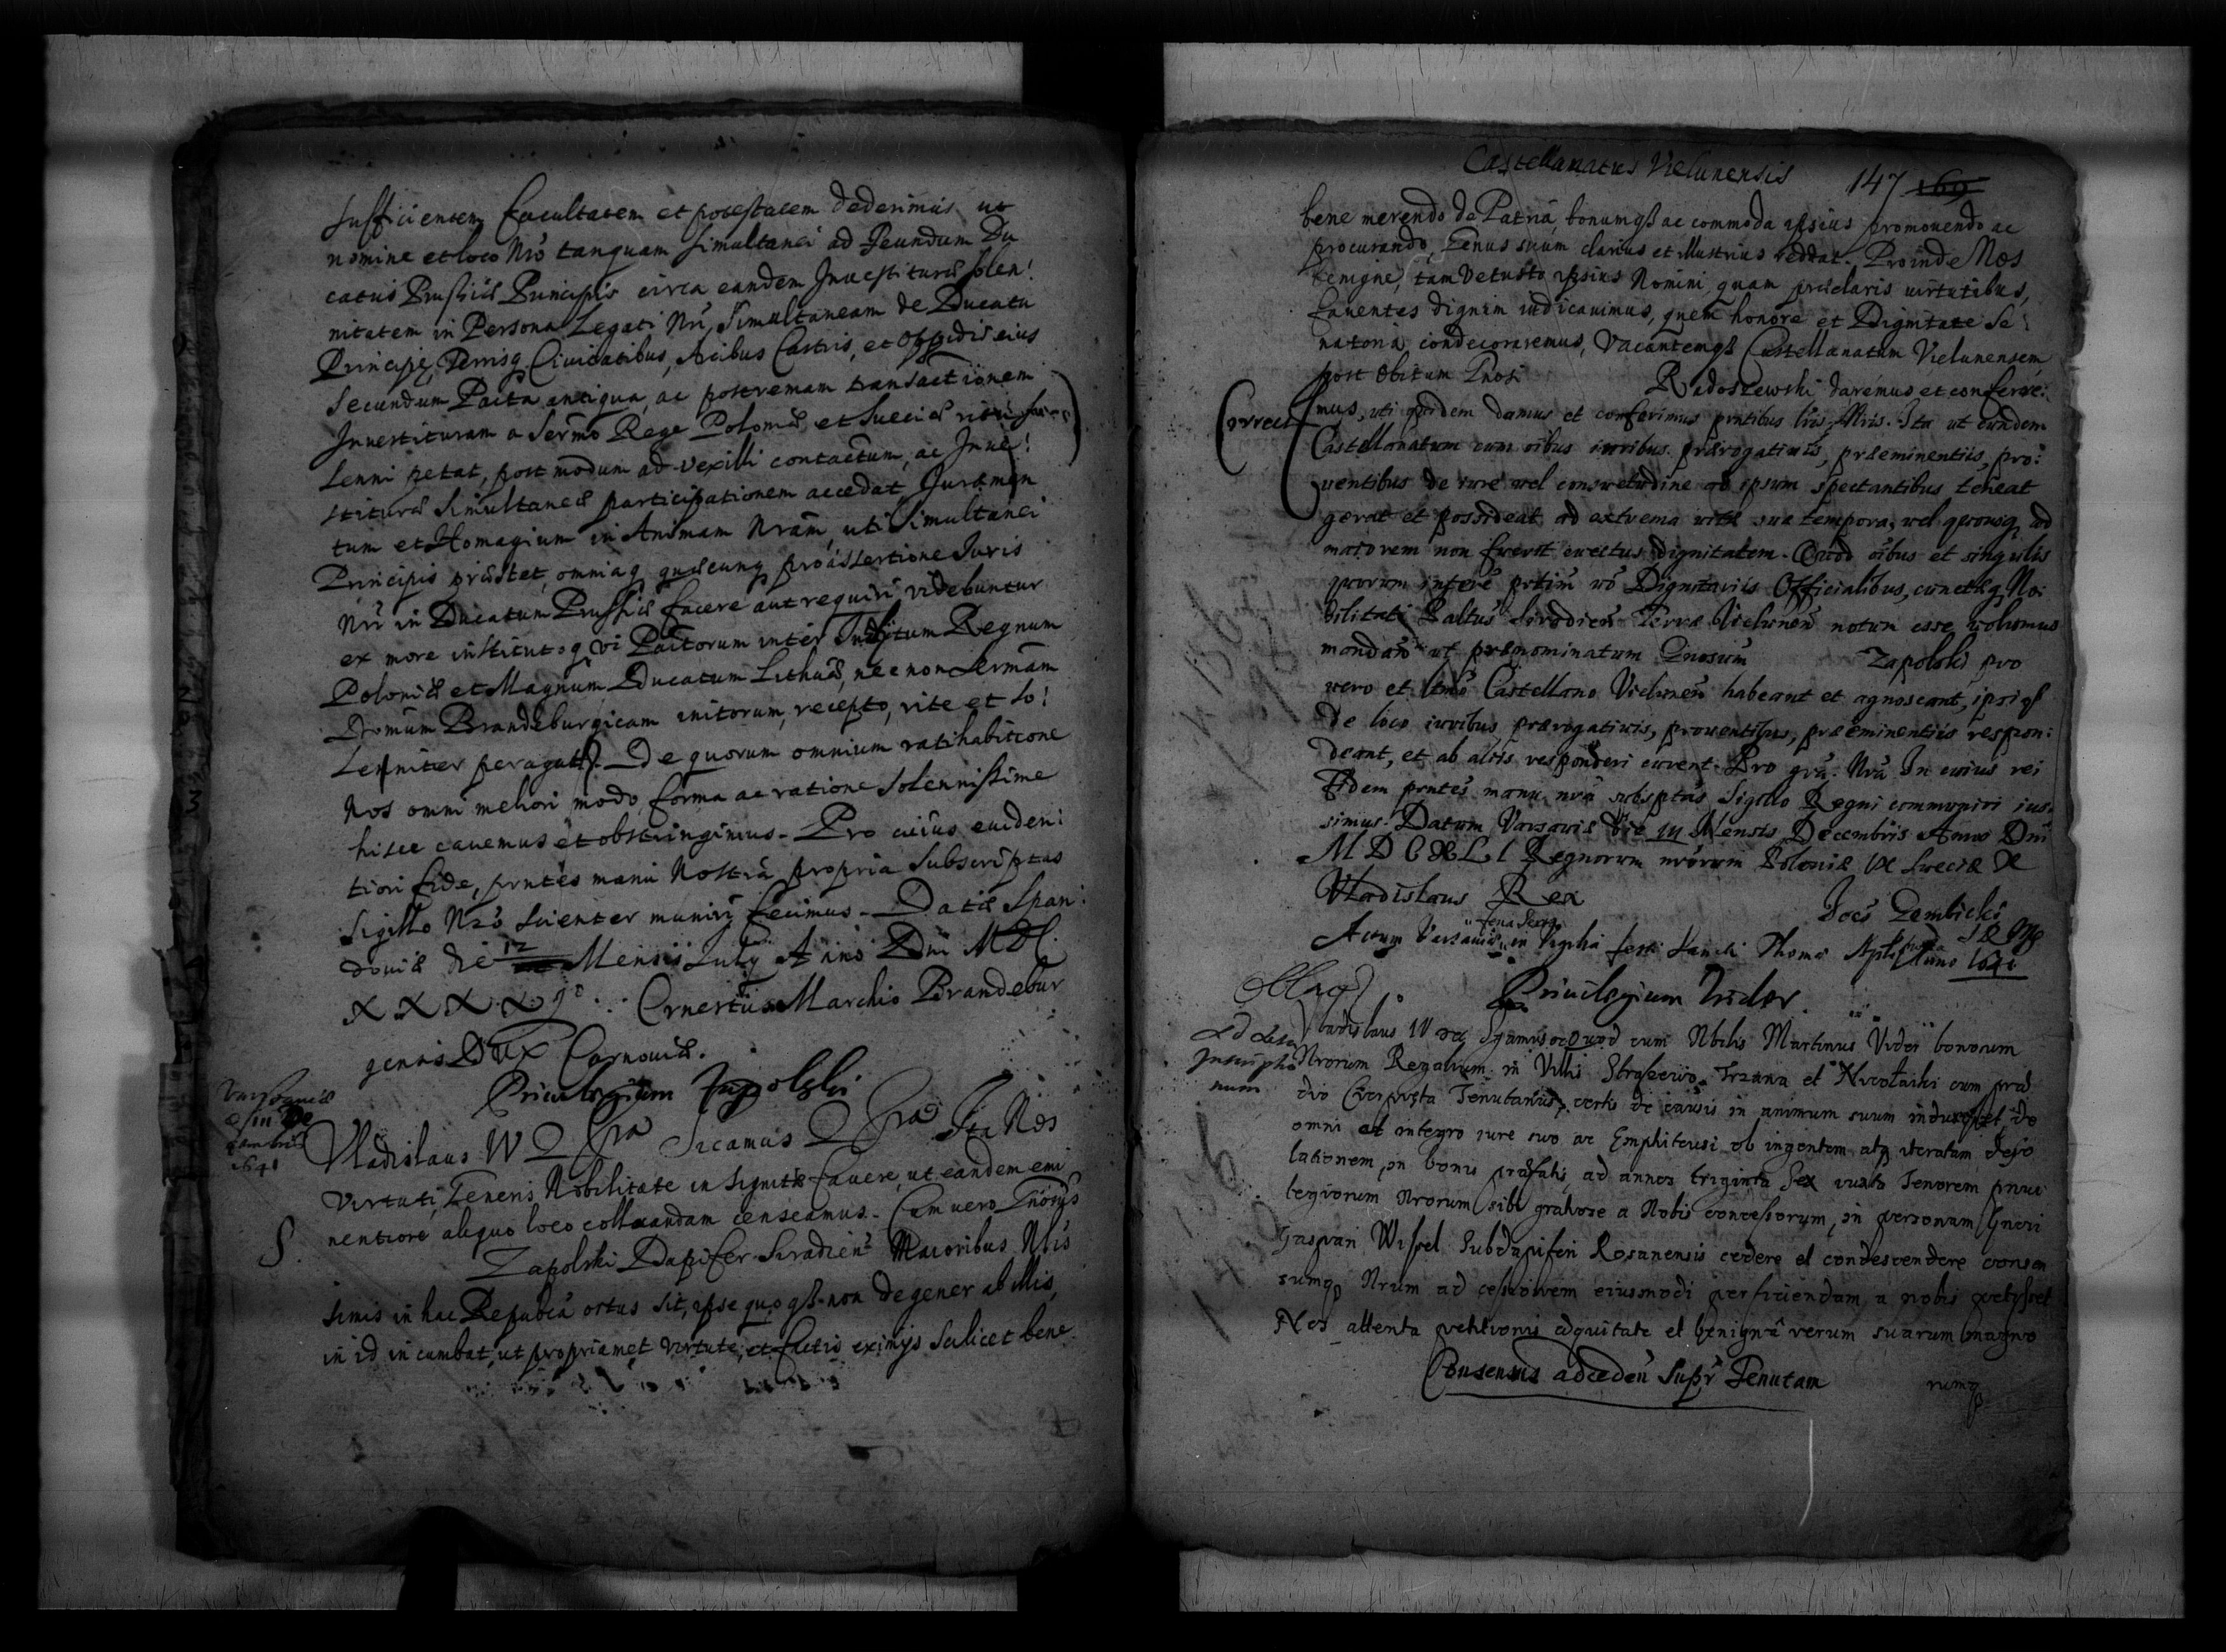 sufficientem facultatem et potestatem dederimus ut
nomine et loco Nrō tanquam simultanei ad Feundum Du
catus Prussiæ Principis circa eandem Inuestituræ solen:
nitatem in Persona Legati Nri, Simultaneam de Ducatu
Principe, Terrisq Ciuitatibus, Arcibus Castris, et Oppidis eius
secundum Pacta antiqua, ac postremam transactionem
Inuestituram a Sermō Rege Poloniæ et Sueciæ ritu so
lenni petat, post modum ad vexilli contactum, ac Inue:
stituræ simultaneæ participationem accedat Juramen
tum et Homagium in Animam Nrām, uti Simultanei
Principis præstet, omniaq quæcunq pro assertione Juris
Nri in Ducatum Prussiæ facere aut requiri videbuntur
ex more institutoq vi Pactorum inter Inclytum Regnum
Poloniæ et Magnum Ducatum Lithuæ, nec non Sermām
Domum Brandeburgicam initorum, recepto, rite et so:
lenniter peragat. De quorum omnium ratihabitione
Nos omni meliori modo, forma ac ratione solennissime
hisce cauemus et obstringimus. Pro cuius euiden:
tiori fide, prntes manu Nostrā propria subscriptas
sigillo Nrō scienter muniri fecimus. Datæ Span:
douiæ die 12 Mensis July Anno Dni MDC
XXXX 1º. Ernestus Marchio Brandebur
gensis Dux Carnouiæ.
Priuilegium Zapolski
Varsouiæ
Decembris
1641
Vladislaus IV D Gra Sicamus D Gra Ita Nos
Virtuti, Generis Nobilitate insignitæ fauere, ut eandem emi
nentiore aliquo loco collocandam censeamus. Cum uero Gnosus
S.
Zapolski Dapifer Siradien Maioribus Nbis
simis in hac Republcā ortus sit, ipse quoqß non degener ab illis,
in id incumbat, ut propriamet virtute, et factis eximys scilicet bene
Castellanatus Vielunensis 147 169
bene merendo de Patriā, bonumqß ac commoda ipsius promouendo ac
procurando, Genus suum clarius et illustrius reddat. Proinde Nos
benigne, tam Vetusto ipsius Nomini, quam præclaris uirtutibus,
fauentes dignum iudicauimus, quem honore et Dignitate Se:
natoriā condecoraremus, Vacantemqß Castellanatum Vielunensem
post Obitum Gnosi Radoszewski daremus et conferre:
Correct
mus, uti quidem damus et conferimus prntibus lris Nris. Ita ut eundem
Castellanatum cum oibus iuribus prærogatiuis, præeminentiis, pro:
uentibus de iure uel consuetudine ad ipsum spectantibus teneat
gerat et possideat ad extrema uitæ suæ tempora, uel quousq ad
maiorem non fuerit euectus dignitatem. Quod oibus et singulis
quorum intere prtim uo Dignitariis Officialibus, cunctæq No:
bilitati Paltus Siradien Terræ Vielunen notum esse uolumus
mandan ut prænominatum Gnosum Zapolski pro
uero et ltmo Castellano Vielunen habeant et agnoscant, ipsiq
de loco iuribus, prærogatiuis, prouentibus, præeminentiis respon:
deant, et ab aliis responderi curent. Pro grā. Nrā In cuius rei
fidem prntes manu nrā subsptas Sigillo Regni communiri ius:
simus. Datum Varsauiæ die Mensis Decembris Anno Dni
MDCXLI Regnorum nrorum Poloniæ &c Sueciæ &c
Vladislaus Rex
Actum Varsauiæ in Vigilia festi Sancti Thomæ Apli Anno 1641
Priuilegium
Ad
num
Vladislaus IV Sgamus quod cum Nbilis Martinus Videi bonorum
Nrorum Regalium in Villis et cum præ
dio Tenutarius, certis de causis in animum suum induxisset, de
omni et integro iure suo ac Emphiteusi ob ingentem atq iteratam deso
lationem, in bonis præfatis, ad annos triginta Sex iuxta Tenorem priui
legiorum Nrorum sibi gratiose a Nobis concessorum, in personam Gnosi
Gaspari Wissel Subdapiferi Rosanensis cedere et condescendere consen
sumqß Nrum ad cessionem eiusmodi perficiendam a nobis petyisset
Nos attenta petitionis æquitate et benignā rerum suarum
Consensus ad ceden supr Tenutam
rumqß